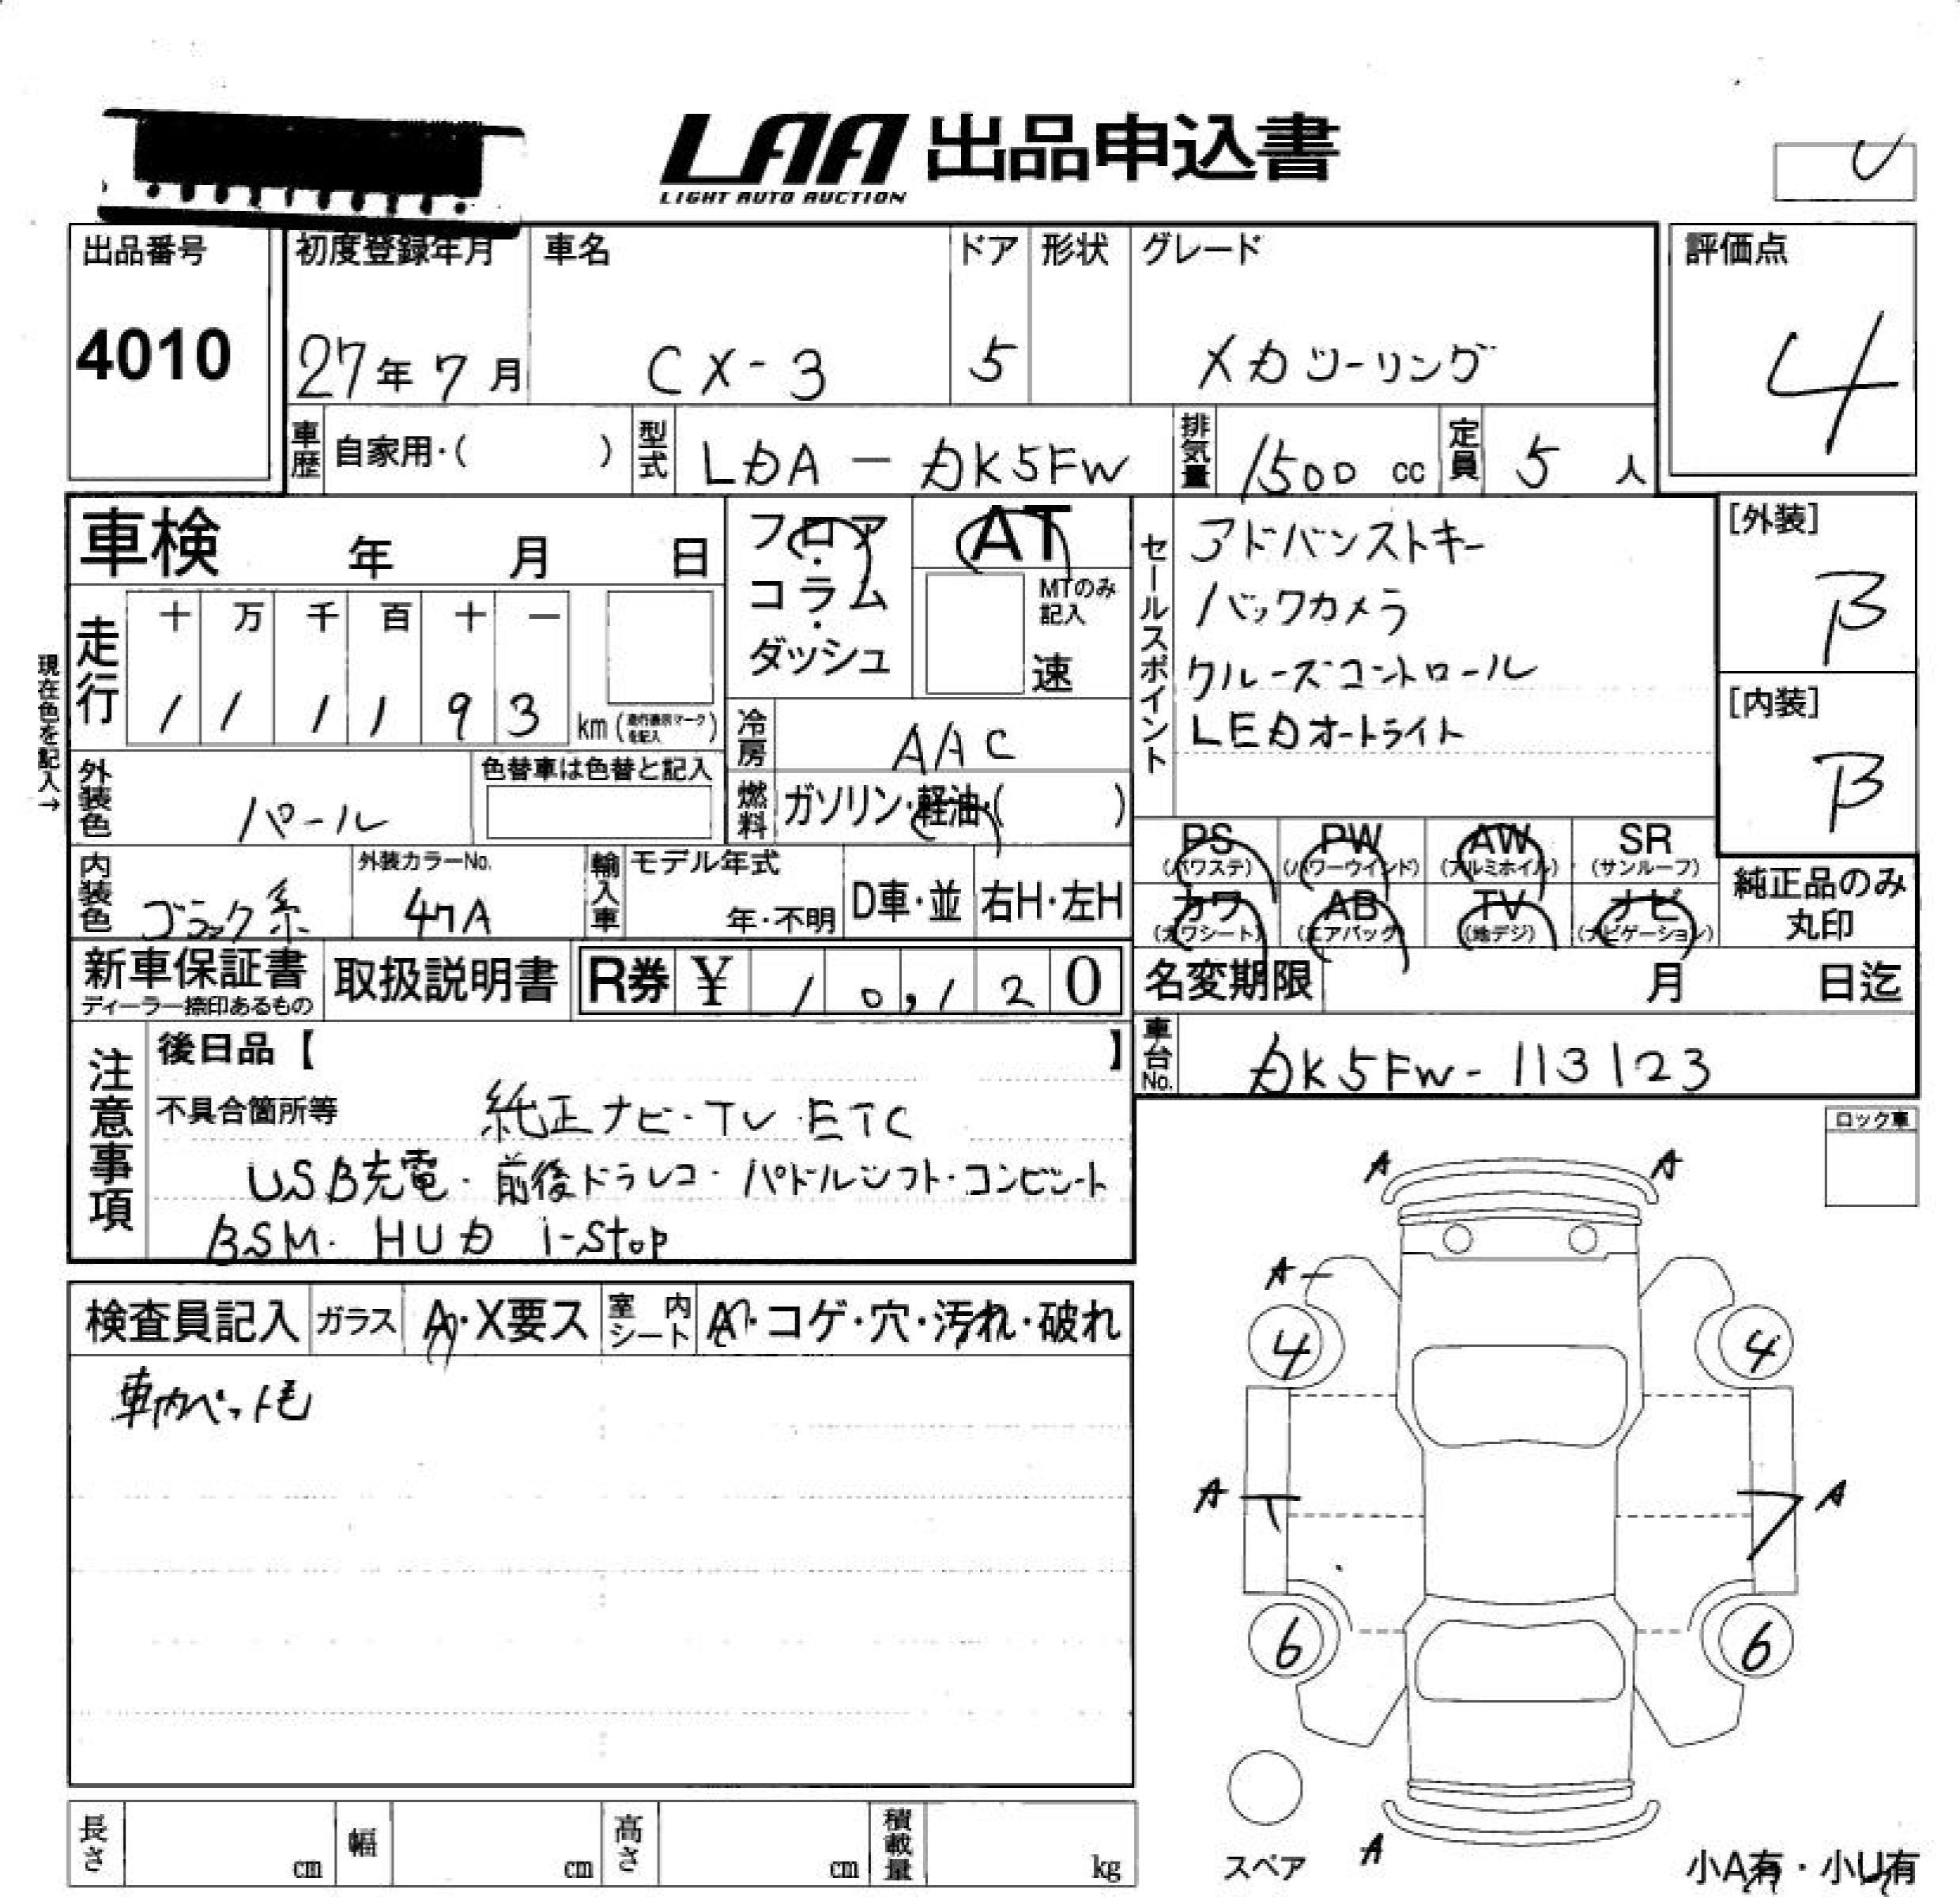 LAA 出品申込書
LIGHT AUTO AUCTION
出品番号
4010
初度登録年月
27年7月
車名
CX-3
ドア
5
形状
グレード
メカツーリング
評価点
4
車歴 自家用・( )
型式 LDA-DK5FW
排気量 1500 cc
定員 5 人
車検 年 月 日
フロア・コラム・ダッシュ
AT
MTのみ記入
速
セールスポイント
アドバンストキー
バックカメラ
クルーズコントロール
LEDオートライト
[外装]
B
[内装]
B
現在色を記入→
走行
十 万 千 百 十 一
1 1 1 1 9 3 km (走行表示マークを記入)
冷房 AAC
外装色 パール
色替車は色替と記入
燃料 ガソリン・軽油・( )
PS (パワステ) PW (パワーウインド) AW (アルミホイル) SR (サンルーフ)
カワ (カワシート) AB (エアバック) TV (地デジ) ナビ (ナビゲーション)
純正品のみ丸印
内装色 ブラック系
外装カラーNo. 47A
輸入車 モデル年式 年・不明 D車・並 右H・左H
新車保証書
ディーラー捺印あるもの
取扱説明書
R券 ¥ 10,120
名変期限 月 日迄
車台No. DK5FW-113123
注意事項
後日品【 】
不具合箇所等
純正ナビ・TV・ETC
USB充電・前後ドラレコ・パドルシフト・コンビシート
BSM・HUD i-stop
ロック車
検査員記入 ガラス A・X要ス 室内シート A・コゲ・穴・汚れ・破れ
車内ペット毛
A A
A
4 4
A A
6 6
A
スペア
小A有・小U有
長さ cm 幅 cm 高さ cm 積載量 kg